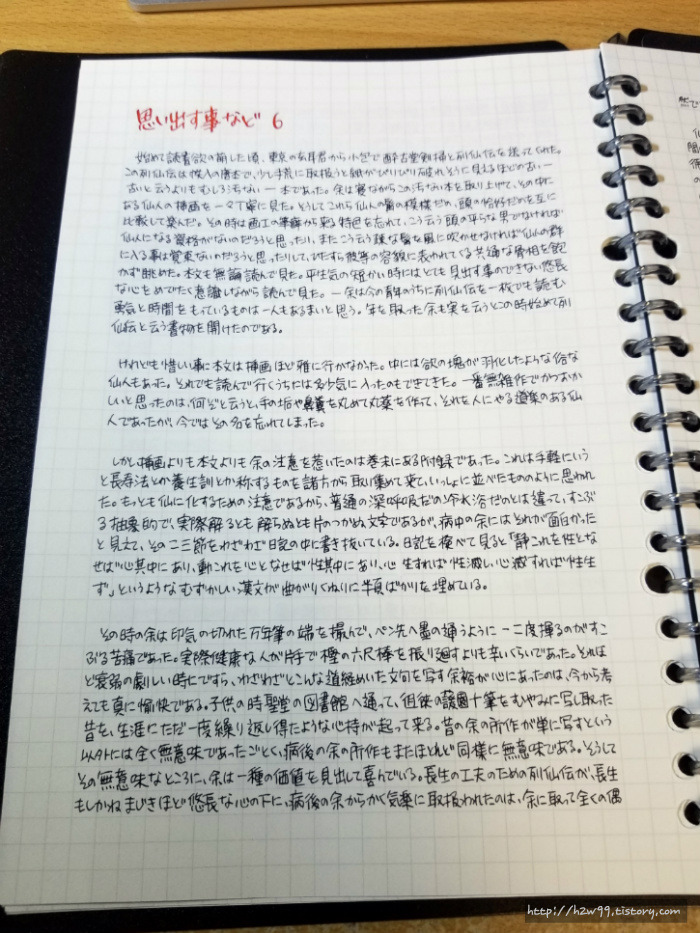 思い出す事など 6
始めて読書欲の萌した頃、東京の玄耳君から小包で酔古堂剣掃と列仙伝を送ってくれた。
この列仙伝は帙入の唐本で、少し手荒に取扱うと紙がぴりぴり破れそうに見えるほどの古い ―
古いと云うよりもむしろ汚ない ― 本であった。余は寝ながらこの汚ない本を取り上げて、その中に
ある仙人の挿画を一々丁寧に見た。そうしてこれら仙人の髯の模様だの、頭の恰好だのを互に
比較して楽んだ。その時は画工の筆癖から来る特色を忘れて、こう云う頭の平らな男でなければ
仙人になる資格がないのだろうと思ったり、またこう云う疎な髯を風に吹かせなければ仙人の群
に入る事は覚束ないのだろうと思ったりして、ひたすら彼等の容貌に表われてくる共通な骨相を飽
かず眺めた。本文も無論読んで見た。平生気の短かい時にはとても見出す事のできない悠長
な心をめでたく意識しながら読んで見た。― 余は今の青年のうちに列仙伝を一枚でも読む
勇気と時間をもっているものは一人もあるまいと思う。年を取った余も実を云うとこの時始めて列
仙伝と云う書物を開けたのである。
けれども惜しい事に本文は挿画ほど雅に行かなかった。中には欲の塊が羽化したような俗な
仙人もあった。それでも読んで行くうちには多少気に入ったのもできてきた。一番無雑作でかつおか
しいと思ったのは、何ぞと云うと、手の垢や鼻糞を丸めて丸薬を作って、それを人にやる道楽のある仙
人であったが、今ではその名を忘れてしまった。
しかし挿画よりも本文よりも余の注意を惹いたのは巻末にある附録であった。これは手軽にいう
と長寿法とか養生訓とか称するものを諸方から取り集めて来て、いっしょに並べたもののように思われ
た。もっとも仙に化するための注意であるから、普通の深呼吸だの冷水浴だのとは違って、すこぶ
る抽象的で、実際解るとも解らぬとも片のつかぬ文字であるが、病中の余にはそれが面白かった
と見えて、その二三節をわざわざ日記の中に書き抜いている。日記を検べて見ると「静これを性とな
せば心其中にあり、動これを心となせば性其中にあり、心生ずれば性滅し、心滅すれば性生
ず」というようなむずかしい漢文が曲がりくねりに半頁ばかりを埋めている。
その時の余は印気の切れた万年筆の端を撮んで、ペン先へ墨の通うように一二度揮るのがすこ
ぶる苦痛であった。実際健康な人が片手で樫の六尺棒を振り廻すよりも辛いくらいであった。それほ
ど衰弱の劇しい時にですら、わざわざとこんな道経めいた文句を写す余裕が心にあったのは、今から考
えても真に愉快である。子供の時聖堂の図書館へ通って、徂徠の蘐園十筆をむやみに写し取った
昔を、生涯にただ一度繰り返し得たような心持が起って来る。昔の余の所作が単に写すという
以外には全く無意味であったごとく、病後の余の所作もまたほとんど同様に無意味である。そうして
その無意味なところに、余は一種の価値を見出して喜んでいる。長生の工夫のための列仙伝が、長生
もしかねまじきほど悠長な心の下に、病後の余からかく気楽に取扱われたのは、余に取って全くの偶
http://h2w99.tistory.com